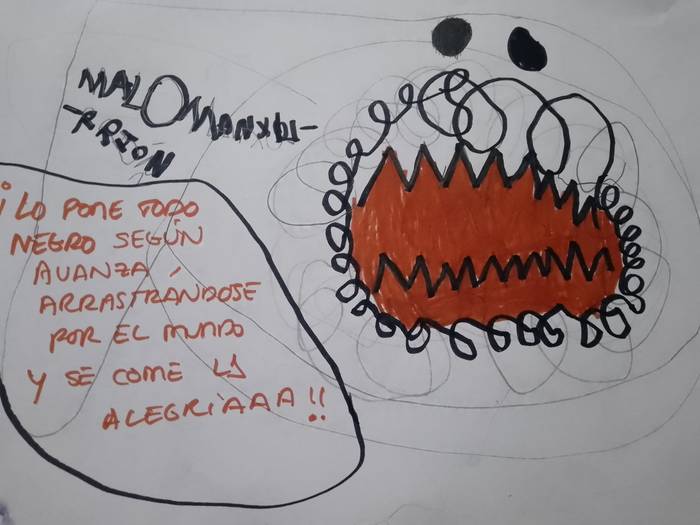 MALOMANXUR-
-RRIÓN
¡LO PONE TODO
NEGRO SEGÚN
AVANZA
ARRASTRÁNDOSE
POR EL MUNDO
Y SE COME LA
ALEGRÍAAA!!